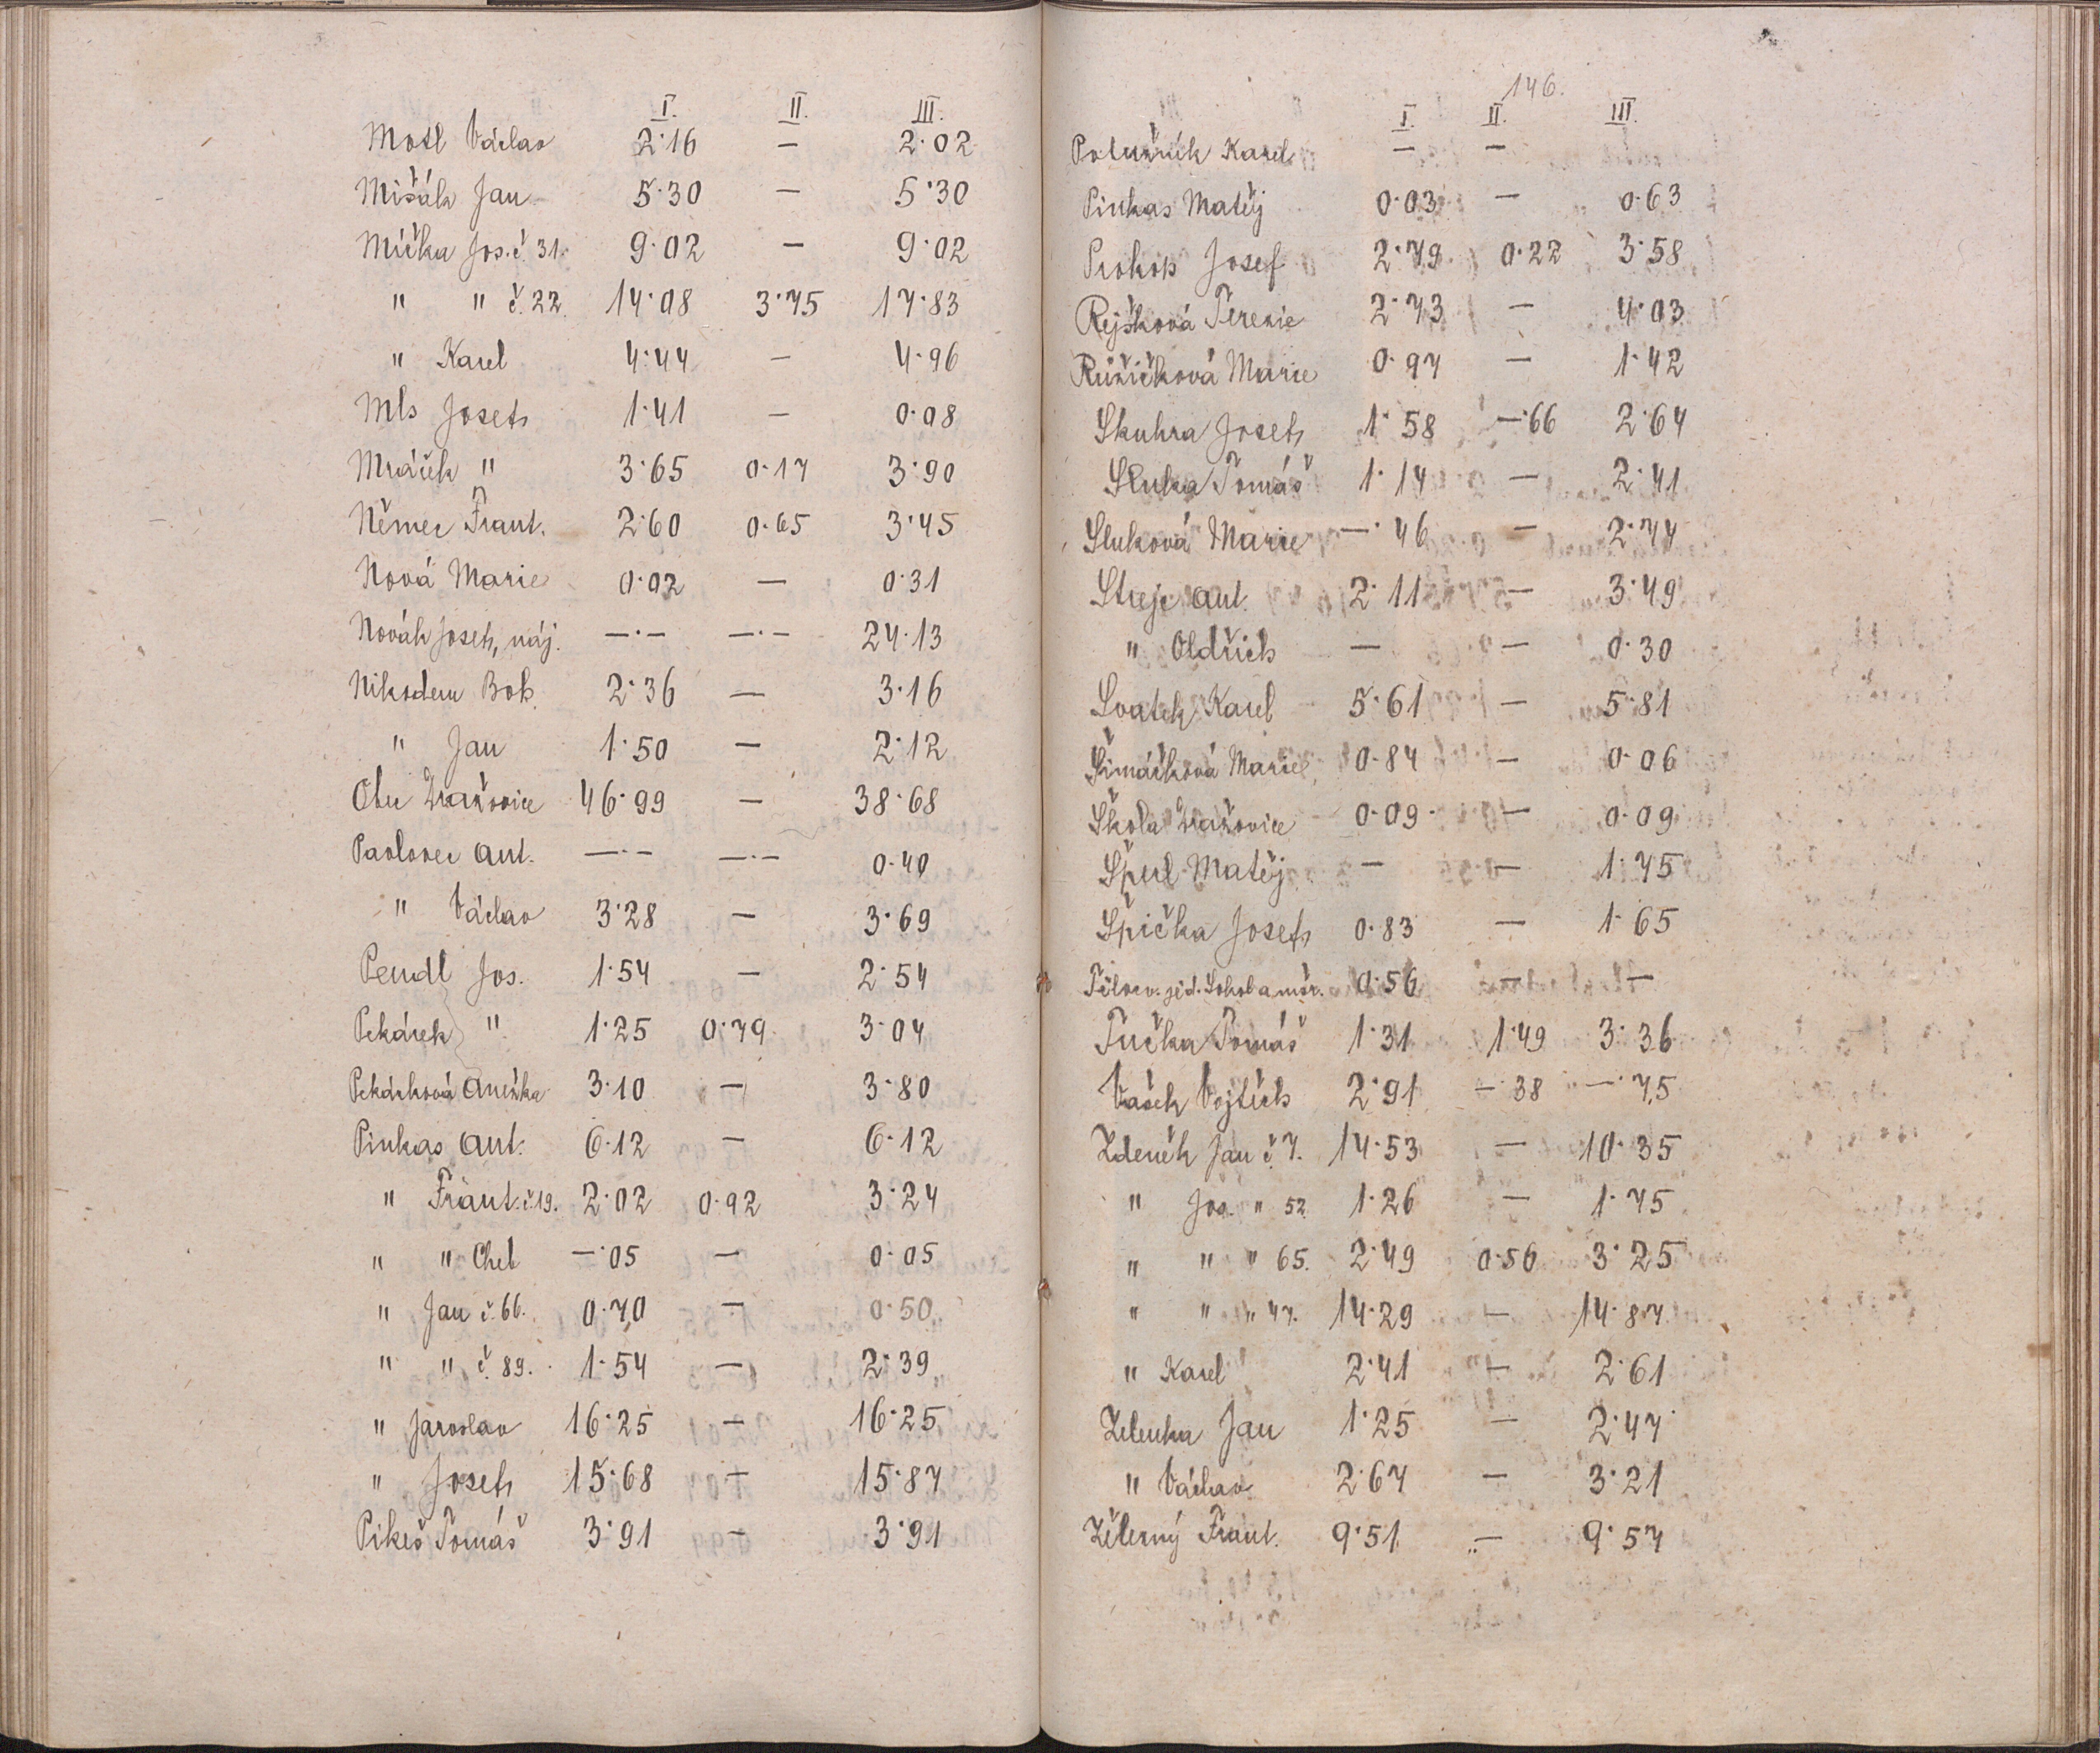 I. II. III.
Mosl Václav 2·16 — 2·02
Mišák Jan 5·30 — 5·30
Mička Jos. č. 31. 9·02 — 9·02
" " č. 22. 14·08 3·75 17·83
" Karel 4·44 — 4·96
Mls Josef 1·41 — 0·08
Mráček " 3·65 0·17 3·90
Němec Frant. 2·60 0·65 3·45
Nová Marie 0·02 — 0·31
Novák Josef, náj. —·— —·— 24·13
Nikodem Boh. 2·36 — 3·16
" Jan 1·50 — 2·12
Obec Dražovice 46·99 — 38·68
Pavlovec Ant. —·— —·— 0·40
" Václav 3·28 — 3·69
Pendl Jos. 1·54 — 2·54
Pekárek " 1·25 0·79 3·04
Pekárková Anežka 3·10 — 3·80
Pinkas Ant. 6·12 — 6·12
" Frant. č. 19. 2·02 0·92 3·24
" " Cheb —·05 — 0·05
" Jan č. 66. 0·70 — 0·50
" " č. 89. 1·54 — 2·39
" Jaroslav 16·25 — 16·25
" Josef 15·68 — 15·87
Pikeš Tomáš 3·91 — 3·91
146.
I. II. III.
Potužník Karel — —
Pinkas Matěj 0·03 — 0·63
Prokop Josef 2·79 0·22 3·58
Rejšková Terezie 2·73 — 4·03
Růžičková Marie 0·97 — 1·42
Skuhra Josef 1·58 —·66 2·64
Sluka Tomáš 1·14 — 2·41
Sluková Marie —·46 — 2·77
Strejc Ant. 2·11 — 3·49
" Oldřich — — 0·30
Svatek Karel 5·61 — 5·81
Šimáčková Marie 0·84 — 0·06
Škola Dražovice 0·09 — 0·09
Špul Matěj — — 1·75
Špička Josef 0·83 — 1·65
Tělocv. jed. Sokol a 0·56 — —
Tučka Tomáš 1·31 1·49 3·36
Vašek Vojtěch 2·91 —·38 —·75
Zdeněk Jan č. 7. 14·53 — 10·35
" Jos. " 52 1·26 — 1·75
" " " 65. 2·49 0·56 3·25
" " " 47. 14·29 — 14·87
" Karel 2·41 — 2·61
Zelenka Jan 1·25 — 2·47
" Václav 2·67 — 3·21
Železný Frant. 9·51 — 9·57